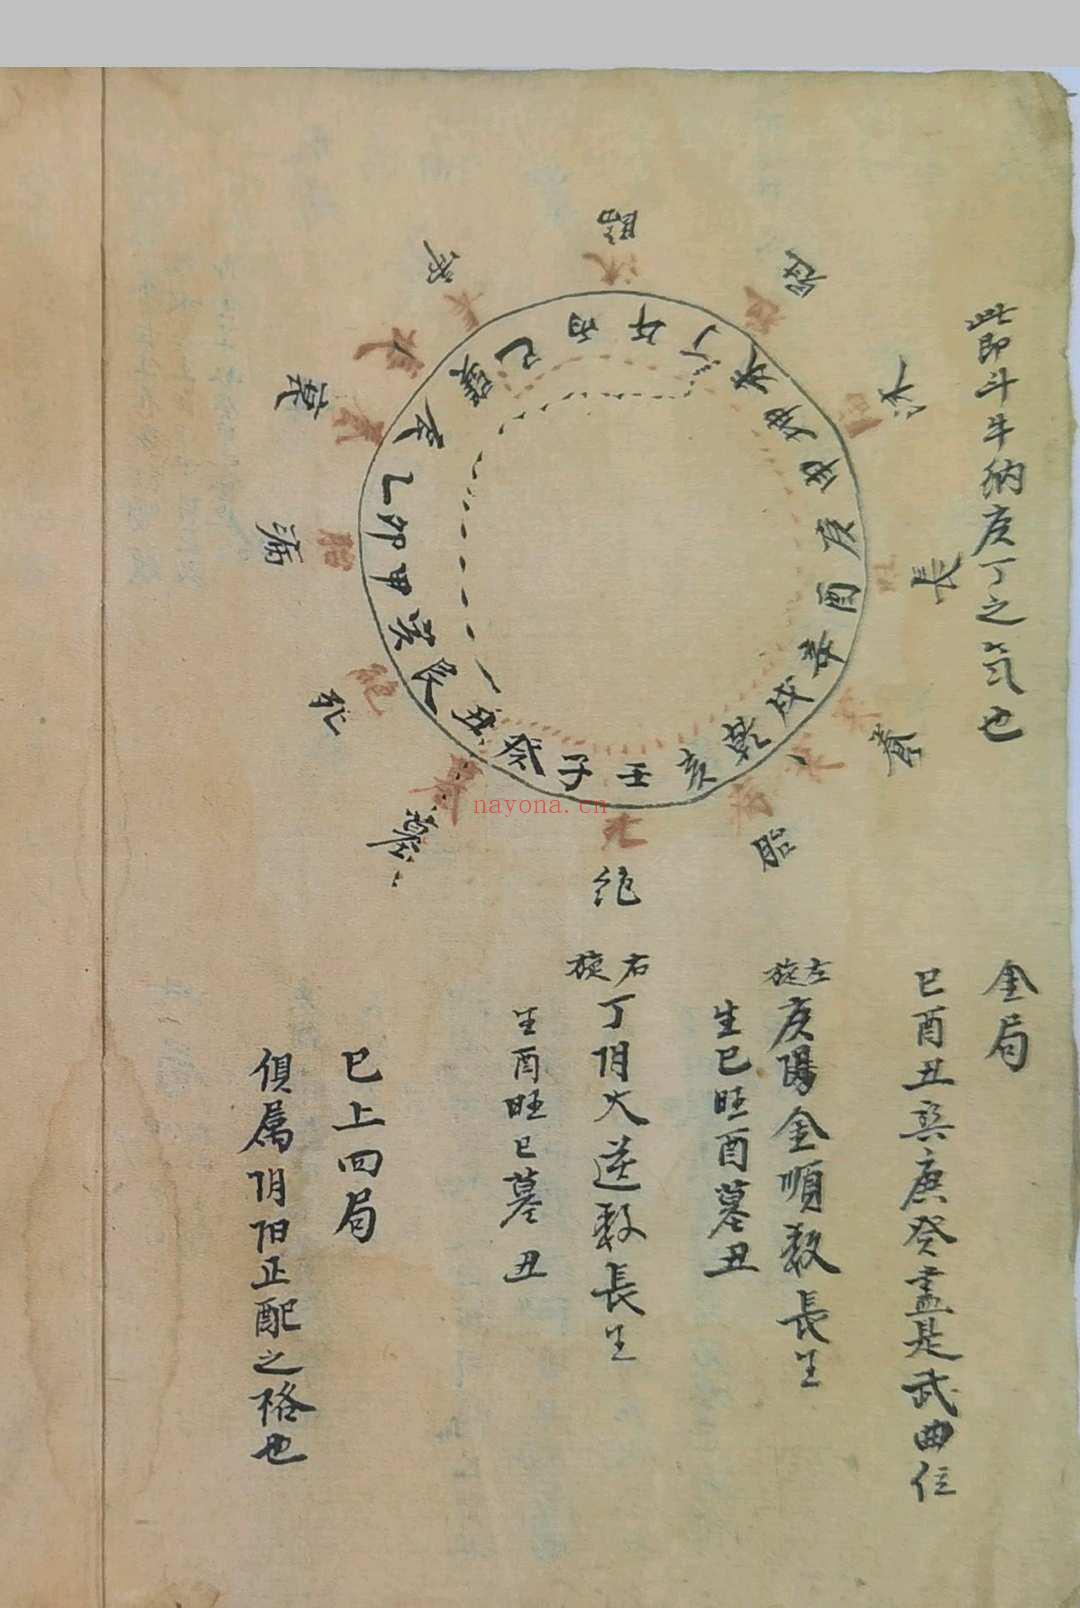 此即斗牛納庚丁之気也
金局
巳酉丑巽庚癸盡是武曲位
左旋
庚陽金順数長生
生巳旺酉墓丑
右旋
丁阴火逆数長生
生酉旺巳墓丑
巳上四局
俱属阴阳正配之格也
臨
冠
沐
長
養
胎
绝
墓
死
病
衰
丙午丁未坤申庚酉辛戌乾亥壬子癸丑艮寅甲卯乙辰巽巳
胎
絕
nayona.cn